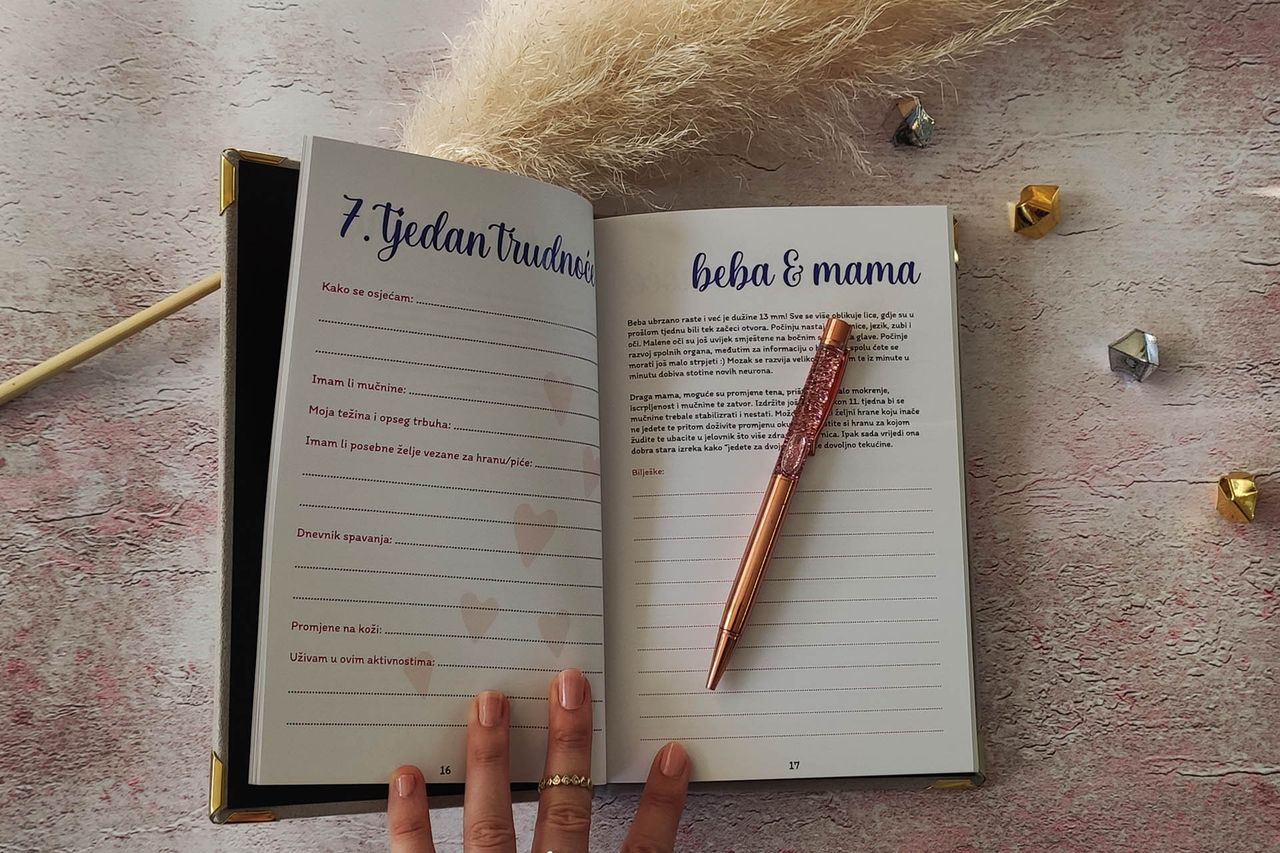 7. tjedan trudnoće
Kako se osjećam:
Imam li mučnine:
Moja težina i opseg trbuha:
Imam li posebne želje vezane za hranu/piće:
Dnevnik spavanja:
Promjene na koži:
Uživam u ovim aktivnostima:
16
beba & mama
Beba ubrzano raste i već je dužine 13 mm! Sve se više oblikuje lice, gdje su u
prošlom tjednu bili tek začeci otvora. Počinju nastaj nice, jezik, zubi i
oči. Malene oči su još uvijek smještene na bočnim s a glave. Počinje
razvoj spolnih organa, međutim za informaciju o spolu ćete se
morati još malo strpjeti :) Mozak se razvija veliko m te iz minute u
minutu dobiva stotine novih neurona.
Draga mama, moguće su promjene tena, alo mokrenje,
iscrpljenost i mučnine te zatvor. Izdržite još kon 11. tjedna bi se
mučnine trebale stabilizirati i nestati. željni hrane koju inače
ne jedete te pritom doživite promjenu tite si hranu za kojom
žudite te ubacite u jelovnik što više zdra nica. Ipak sada vrijedi ona
dobra stara izreka kako "jedete za dvoj e dovoljno tekućine.
Bilješke:
17